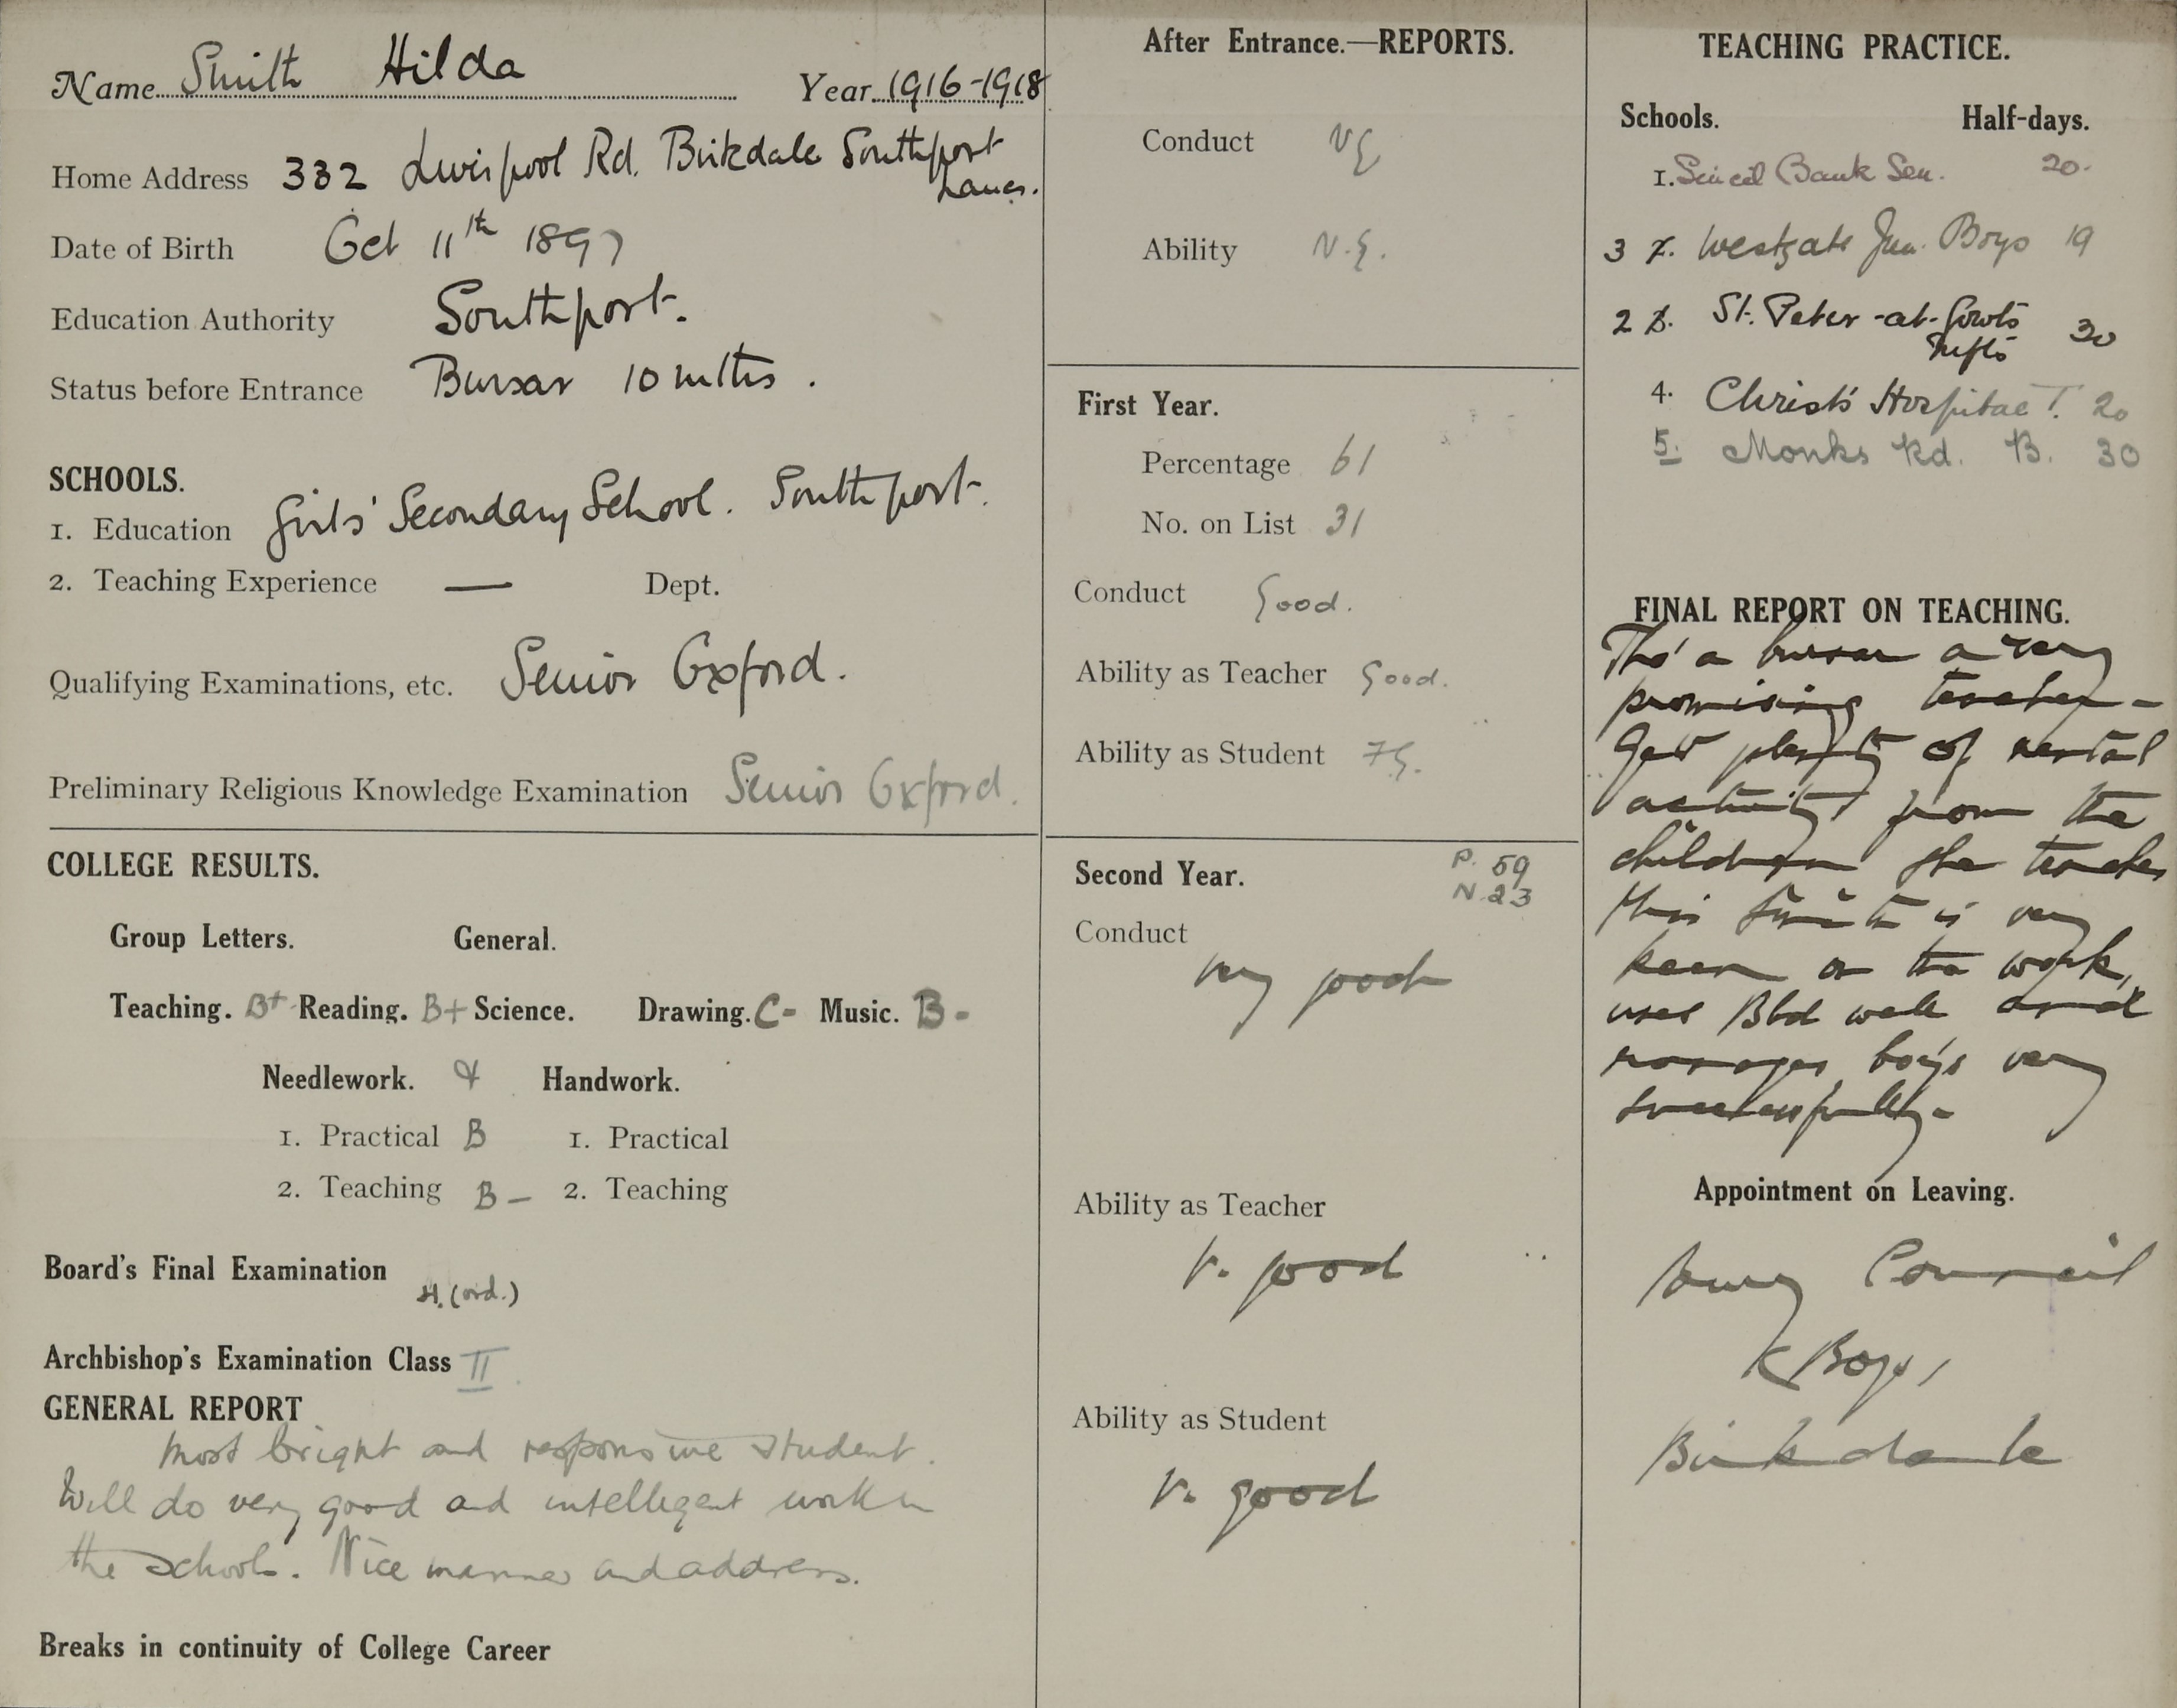 Name Smith Hilda Year 1916-1918
Home Address 332 Liverpool Rd. Birkdale Southport
Lancs.
Date of Birth Oct 11th 1897
Education Authority Southport.
Status before Entrance Bursar 10 mths.
SCHOOLS.
1. Education Girls' Secondary School. Southport.
2. Teaching Experience — Dept.
Qualifying Examinations, etc. Senior Oxford.
Preliminary Religious Knowledge Examination Senior Oxford.
COLLEGE RESULTS.
Group Letters. General.
Teaching. B+ Reading. B+ Science. Drawing. C- Music. B-
Needlework. Handwork.
1. Practical B 1. Practical
2. Teaching B- 2. Teaching
Board's Final Examination
H. (ord.)
Archbishop's Examination Class II
GENERAL REPORT
Most bright and responsive student.
Will do very good and intelligent work in
the schools. Nice manner and address.
Breaks in continuity of College Career
After Entrance.—REPORTS.
Conduct VG
Ability V.G.
First Year.
Percentage 61
No. on List 31
Conduct Good.
Ability as Teacher Good.
Ability as Student FG.
Second Year. P. 59
N. 23
Conduct
very good
Ability as Teacher
V. good
Ability as Student
V. good
TEACHING PRACTICE.
Schools. Half-days.
1. Sincil Bank Sen. 20.
3 2. Westgate Jun. Boys 19
2 3. St. Peter-at-Gowts 30
Infts
4. Christ's Hospital T. 20
5. Monks Rd. B. 30
FINAL REPORT ON TEACHING.
Tho' a bursar a very
promising teacher -
Gets plenty of mental
activity from the
children she teaches
Miss Smith is very
keen on the work,
uses Bbd well and
manages boys very
successfully -
Appointment on Leaving.
Council
Boys,
Birkdale